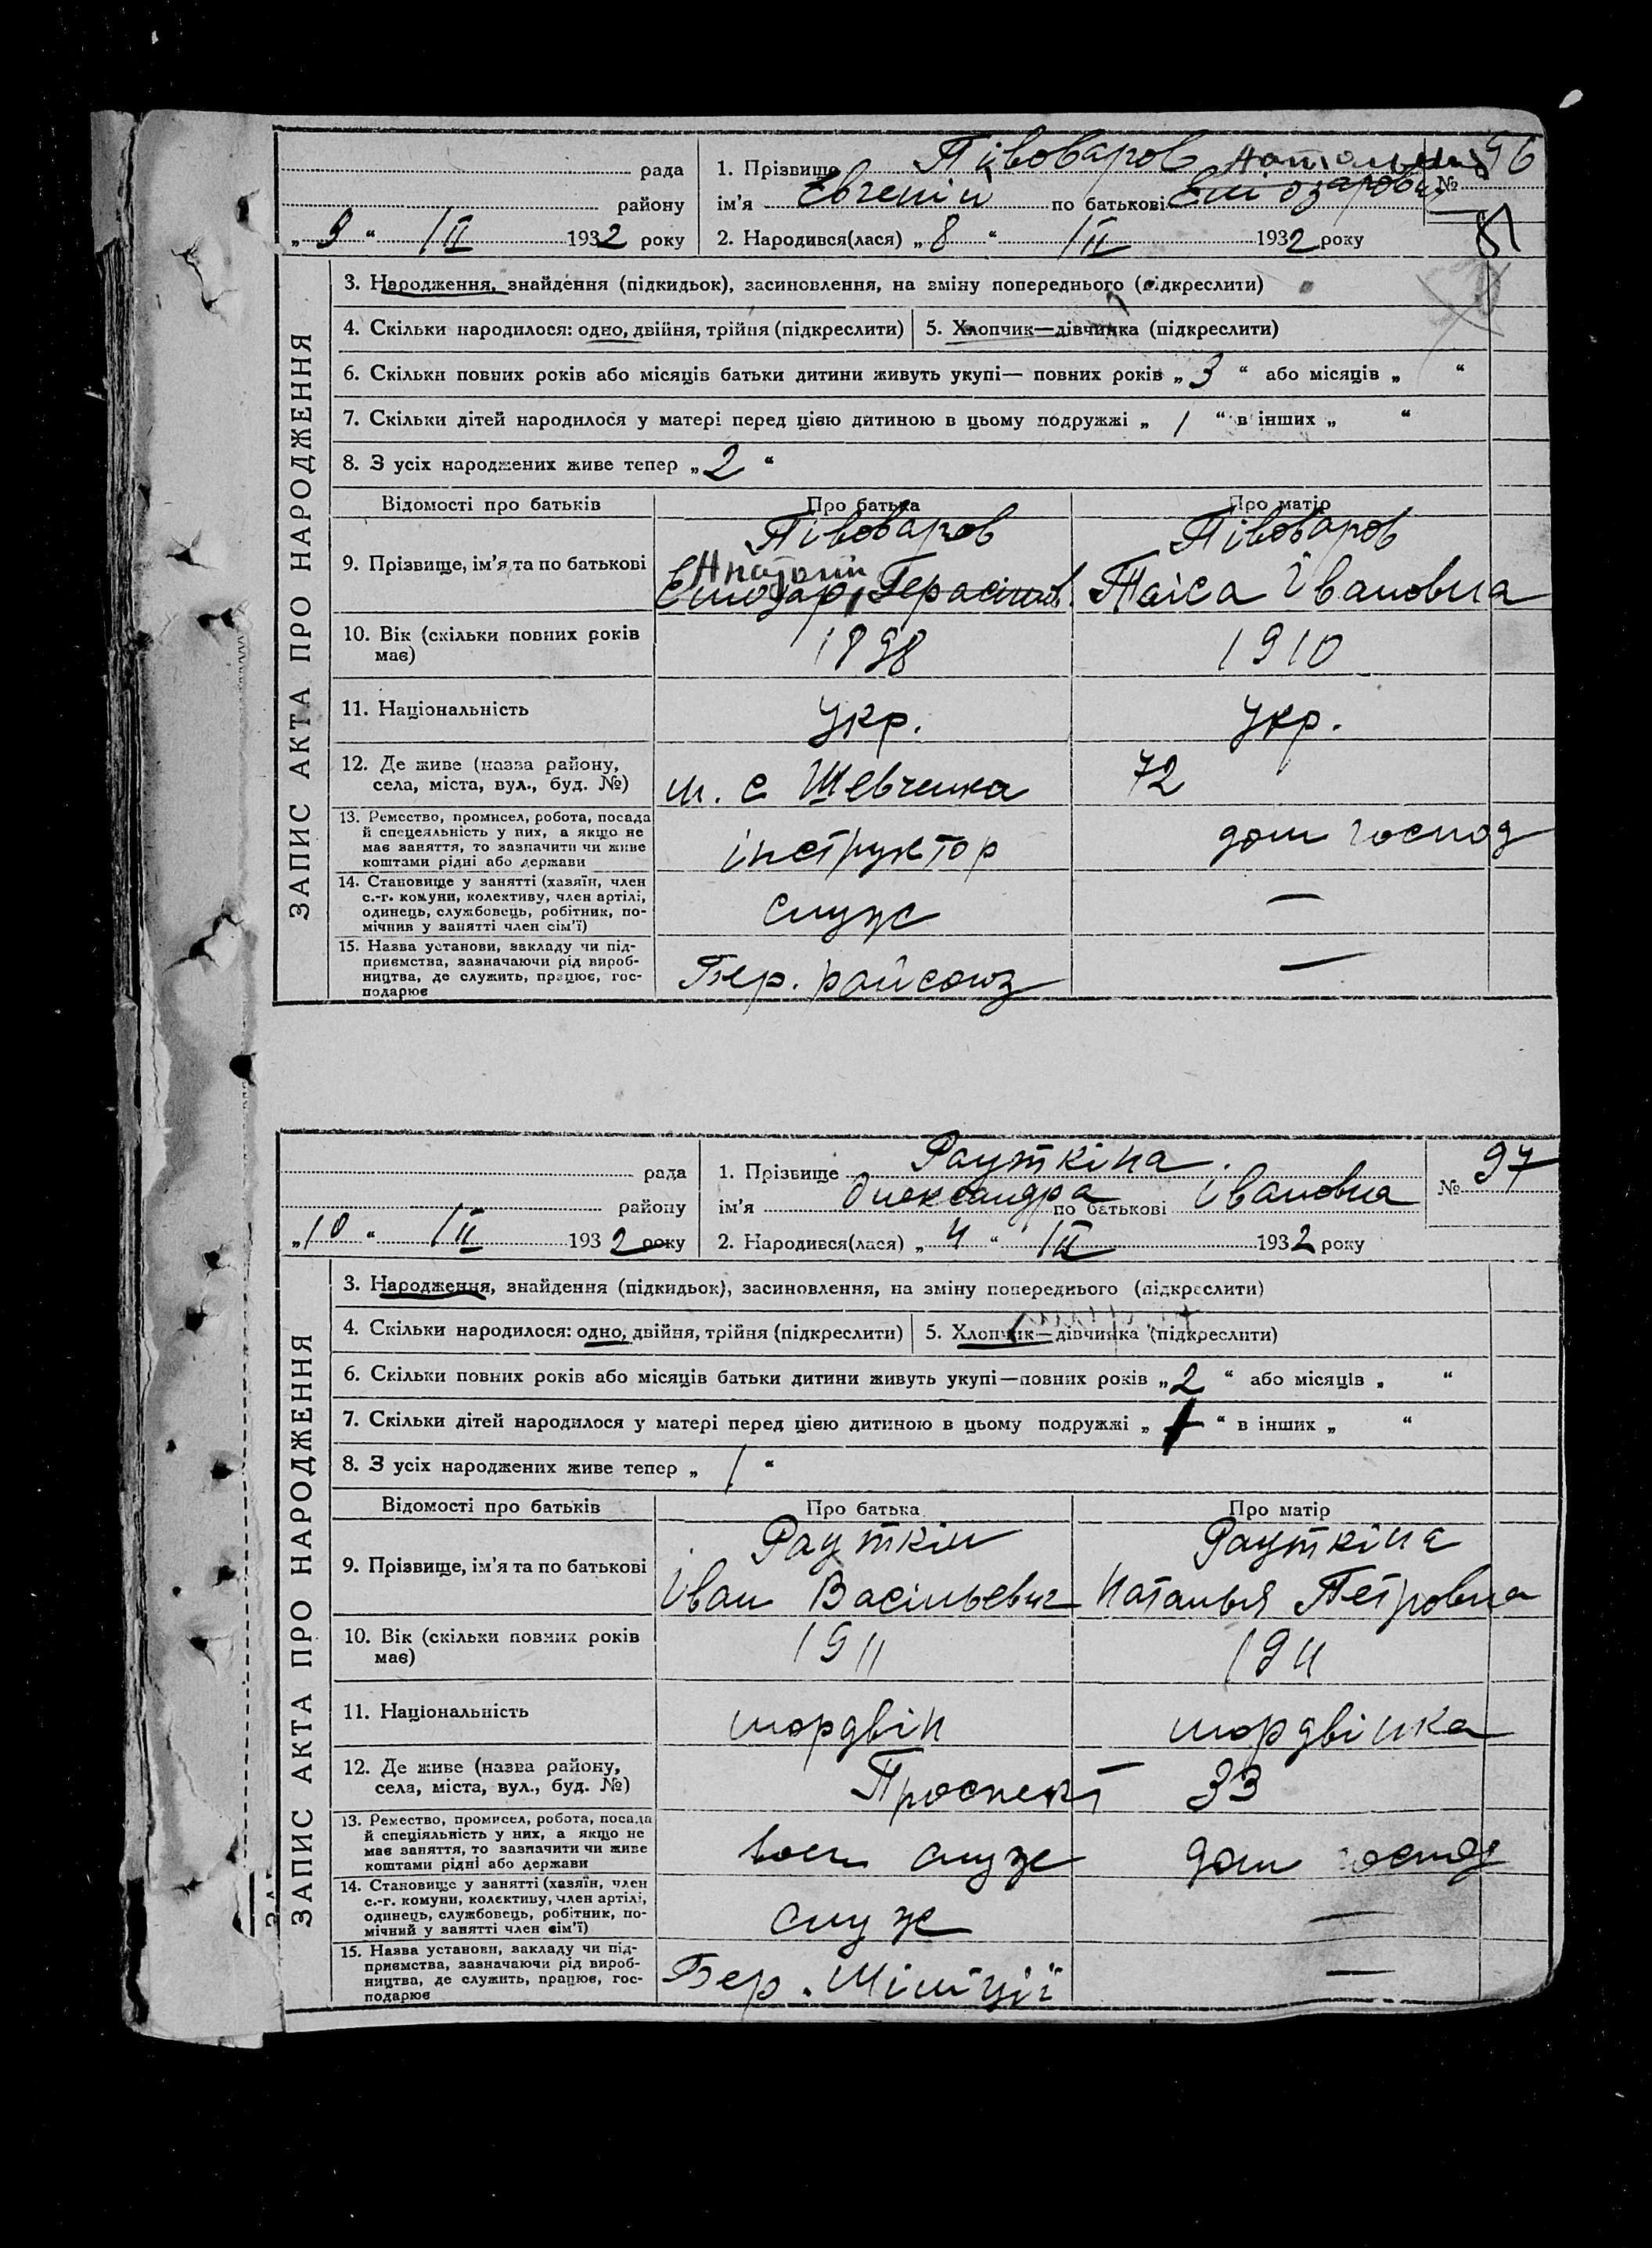 рада
1. Прізвище Півоваров
96
району
ім'я Євгеній по батькові
№
„ 9 “ III 1932 року
2. Народився(лася) „ 8 “ III 1932 року
81
ЗАПИС АКТА ПРО НАРОДЖЕННЯ
3. Народження, знайдення (підкидьок), засиновлення, на зміну попереднього (підкреслити)
4. Скільки народилося: одно, двійня, трійня (підкреслити)
5. Хлопчик—дівчинка (підкреслити)
6. Скільки повних років або місяців батьки дитини живуть укупі— повних років „ 3 “ або місяців „ “
7. Скільки дітей народилося у матері перед цією дитиною в цьому подружжі „ 1 “ в інших „ “
8. З усіх народжених живе тепер „ 2 “
Відомості про батьків
Про батька
Про матір
9. Прізвище, ім'я та по батькові
Півоваров
Анатолій
Герасімов.
Півоваров
Таіса Івановна
10. Вік (скільки повних років
має)
1898
1910
11. Національність
укр.
укр.
12. Де живе (назва району,
села, міста, вул., буд. №)
м. с Шевченка
72
13. Ремество, промисел, робота, посада
й спецеяльність у них, а якщо не
має заняття, то зазначити чи живе
коштами рідні або держави
інструктор
дом господ
14. Становище у занятті (хазяїн, член
с.-г. комуни, колективу, член артілі,
одинець, службовець, робітник, по-
мічнив у занятті член сім'ї)
служ
—
15. Назва установи, закладу чи під-
приємства, зазначаючи рід вироб-
ництва, де служить, працює, гос-
подарює
Бер. райсоюз
—
рада
1. Прізвище Рауткіна.
97
району
ім'я Олександра по батькові Івановна
№
„ 10 “ III 1932 року
2. Народився(лася) „ 4 “ III 1932 року
ЗАПИС АКТА ПРО НАРОДЖЕННЯ
3. Народження, знайдення (підкидьок), засиновлення, на зміну попереднього (підкреслити)
4. Скільки народилося: одно, двійня, трійня (підкреслити)
5. Хлопчик—дівчинка (підкреслити)
6. Скільки повних років або місяців батьки дитини живуть укупі—повних років „ 2 “ або місяців „ “
7. Скільки дітей народилося у матері перед цією дитиною в цьому подружжі „ “ в інших „ “
8. З усіх народжених живе тепер „ 1 “
Відомості про батьків
Про батька
Про матір
9. Прізвище, ім'я та по батькові
Рауткін
Іван Васільевич
Рауткіна
Наталья Петровна
10. Вік (скільки повних років
має)
1911
1911
11. Національність
мордвін
мордвінка
12. Де живе (назва району,
села, міста, вул., буд. №)
Проспект
33
13. Ремество, промисел, робота, посада
й спеціяльність у них, а якщо не
має заняття, то зазначити чи живе
коштами рідні або держави
служ
дом господ
14. Становище у занятті (хазяїн, член
с.-г. комуни, колективу, член артілі,
одинець, службовець, робітник, по-
мічний у занятті член сім'ї)
служ
—
15. Назва установи, закладу чи під-
приємства, зазначаючи рід вироб-
ництва, де служить, працює, гос-
подарює
Бер. Міліції
—